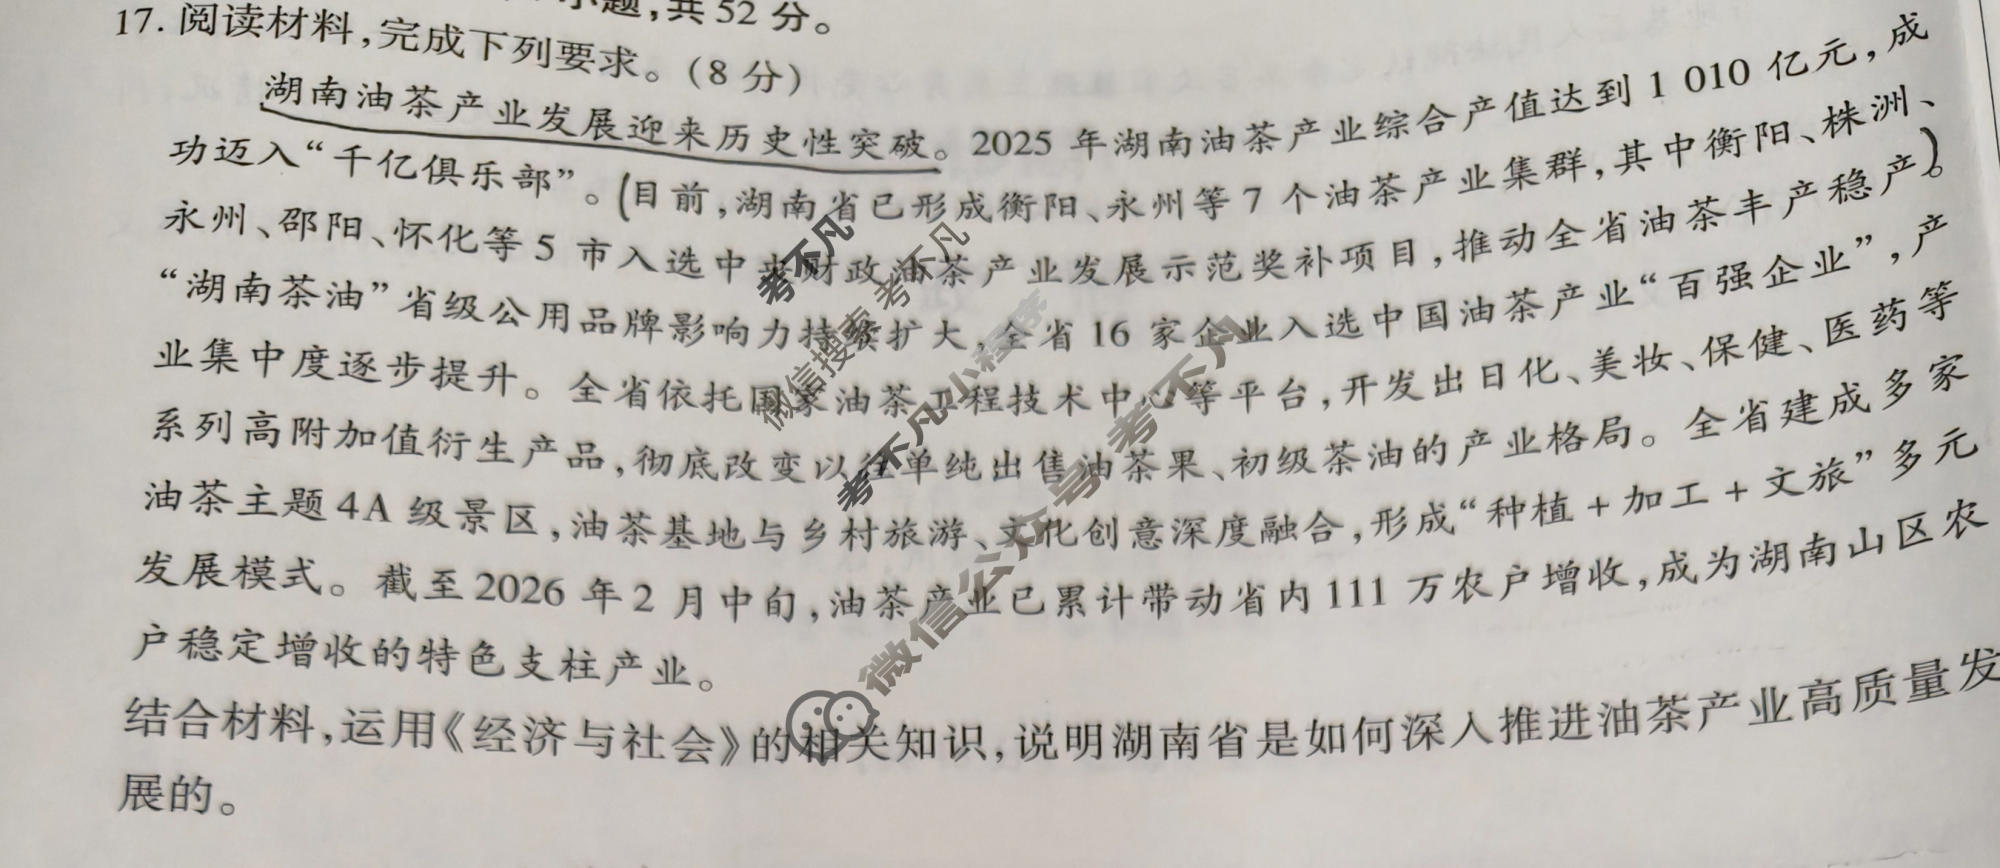 小题,共52分。
17. 阅读材料,完成下列要求。(8分)
湖南油茶产业发展迎来历史性突破。2025年湖南油茶产业综合产值达到1 010亿元,成
功迈入“千亿俱乐部”。(目前,湖南省已形成衡阳、永州等7个油茶产业集群,其中衡阳、株洲、
永州、邵阳、怀化等5市入选中央财政油茶产业发展示范奖补项目,推动全省油茶丰产稳产)。
“湖南茶油”省级公用品牌影响力持续扩大,全省16家企业入选中国油茶产业“百强企业”,产
业集中度逐步提升。全省依托国家油茶工程技术中心等平台,开发出日化、美妆、保健、医药等
系列高附加值衍生产品,彻底改变以往单纯出售油茶果、初级茶油的产业格局。全省建成多家
油茶主题4A级景区,油茶基地与乡村旅游、文化创意深度融合,形成“种植+加工+文旅”多元
发展模式。截至2026年2月中旬,油茶产业已累计带动省内111万农户增收,成为湖南山区农
户稳定增收的特色支柱产业。
结合材料,运用《经济与社会》的相关知识,说明湖南省是如何深入推进油茶产业高质量发
展的。
考不凡
微信搜索 考不凡
考不凡小程序
微信公众号 考不凡